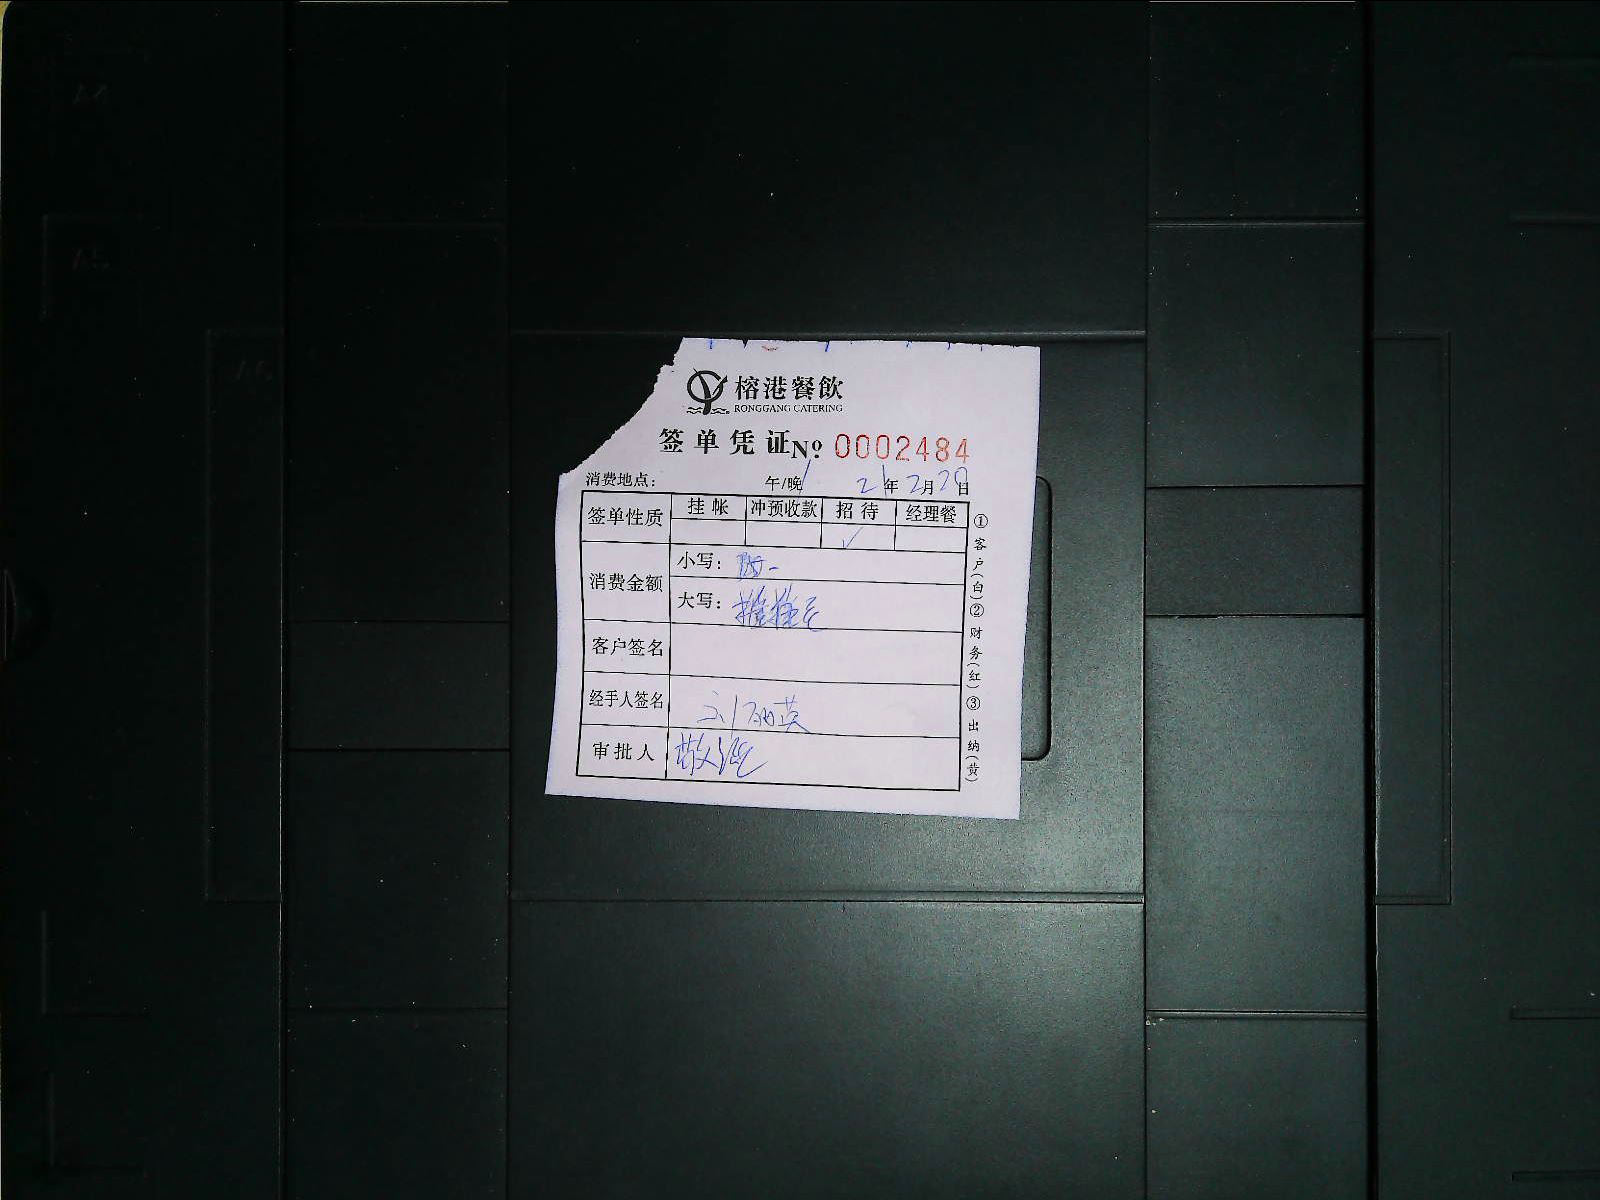 榕港餐飲
RONGGANG CATERING
签单凭证 Nº 0002484
消费地点： 午/晚 21年2月20日
签单性质 挂帐 冲预收款 招待 经理餐
✓
消费金额 小写：
大写：
客户签名
经手人签名 刘丽英
审批人
①客户(白)②财务(红)③出纳(黄)
A4
A5